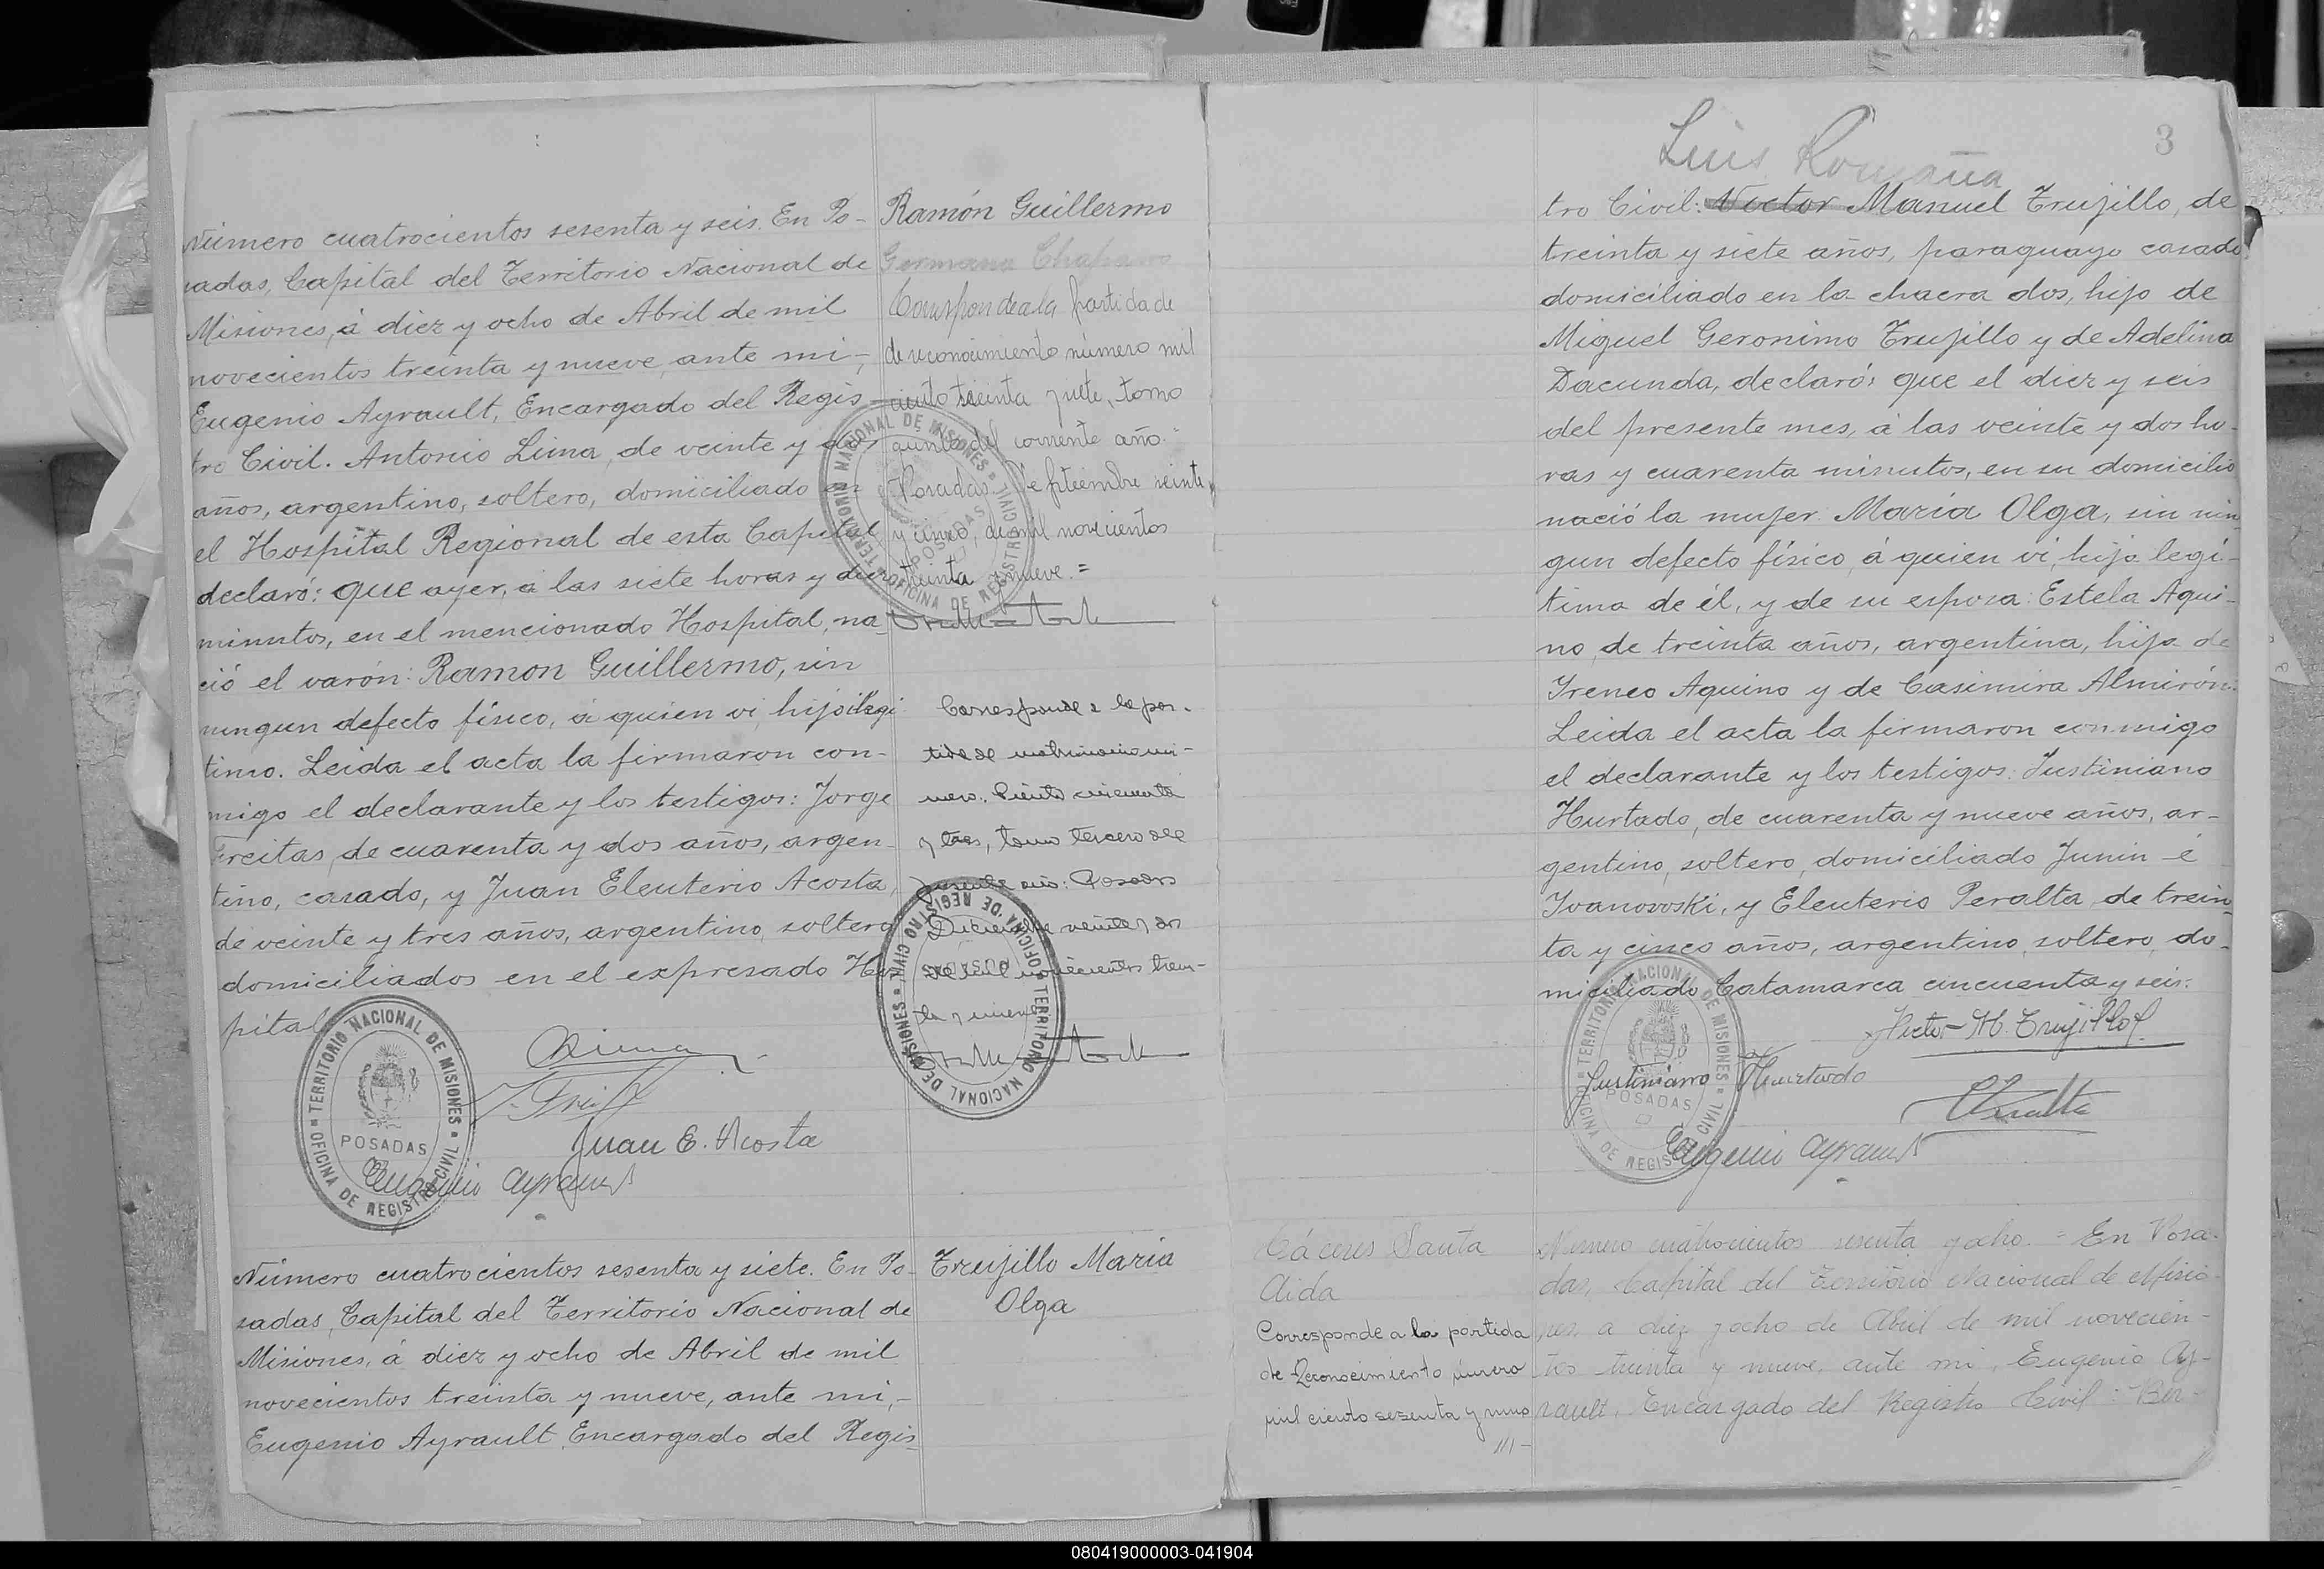 Número cuatrocientos sesenta y seis. En Po-
sadas, Capital del Territorio Nacional de
Misiones, á diez y ocho de Abril de mil
novecientos treinta y nueve, ante mi,
Eugenio Ayrault, Encargado del Regis
tro Civil. Antonio Lima, de veinte y dos
años, argentino, soltero, domiciliado en
el Hospital Regional de esta Capital
declaró: que ayer, a las siete horas y diez
minutos, en el mencionado Hospital, na
ció el varón: Ramon Guillermo, sin
ningun defecto físico, á quien vi, hijo ilegi
timo. Leida el acta la firmaron con-
migo el declarante y los testigos: Jorge
Freitas, de cuarenta y dos años, argen-
tino, casado, y Juan Eleuterio Acosta,
de veinte y tres años, argentino, soltero
domiciliados en el expresado Hos
pital
TERRITORIO NACIONAL DE MISIONES
OFICINA DE REGISTRO CIVIL
POSADAS
Lima
J. Freitas
Juan E. Acosta
Eugenio Ayrault
Ramón Guillermo
Germana Chaparro
Corresponde a la partida de
de reconocimiento número mil
ciento treinta y siete, tomo
quinto del corriente año.
Posadas, Setiembre veinte
y cinco, de mil novecientos
treinta y nueve.=
TERRITORIO NACIONAL DE MISIONES
OFICINA DE REGISTRO CIVIL
POSADAS
Corresponde a la par-
tida de matrimonio nú-
mero. Ciento cincuenta
y tres, tomo tercero del
presente año: Posadas
Diciembre veinte y dos
de mil novecientos trein-
ta y nueve
TERRITORIO NACIONAL DE MISIONES
OFICINA DE REGISTRO CIVIL
POSADAS
Número cuatrocientos sesenta y siete. En Po-
sadas, Capital del Territorio Nacional de
Misiones, á diez y ocho de Abril de mil
novecientos treinta y nueve, ante mi,-
Eugenio Ayrault, Encargado del Regis
Trujillo Maria
Olga
3
Luis Romaña
tro Civil: Hector Manuel Trujillo, de
treinta y siete años, paraguayo casado
domiciliado en la chacra dos, hijo de
Miguel Geronimo Trujillo y de Adelina
Dacunda, declaró: que el diez y seis
del presente mes, á las veinte y dos ho-
ras y cuarenta minutos, en su domicilio
nació la mujer Maria Olga, sin nin
gun defecto físico, á quien vi, hija legi-
tima de él, y de su esposa: Estela Aqui-
no, de treinta años, argentina, hija de
Ireneo Aquino y de Casimira Almirón.
Leida el acta la firmaron conmigo
el declarante y los testigos: Justiniano
Hurtado, de cuarenta y nueve años, ar-
gentino, soltero, domiciliado Junin é
Ivanovoski, y Eleuterio Peralta, de trein
ta y cinco años, argentino, soltero, do-
miciliado Catamarca cincuenta y seis:
Hector M. Trujillo
Justiniano Hurtado
E. Peralta
Eugenio Ayrault
TERRITORIO NACIONAL DE MISIONES
OFICINA DE REGISTRO CIVIL
POSADAS
Cáceres Santa
Aida
Corresponde a la partida
de Reconocimiento número
mil ciento sesenta y uno
///-
Número cuatrocientos sesenta y ocho = En Posa-
das, Capital del Territorio Nacional de Misio-
nes, a diez y ocho de Abril de mil novecien-
tos treinta y nueve, ante mi, Eugenio Ay-
rault, Encargado del Registro Civil: Ber-
080419000003-041904